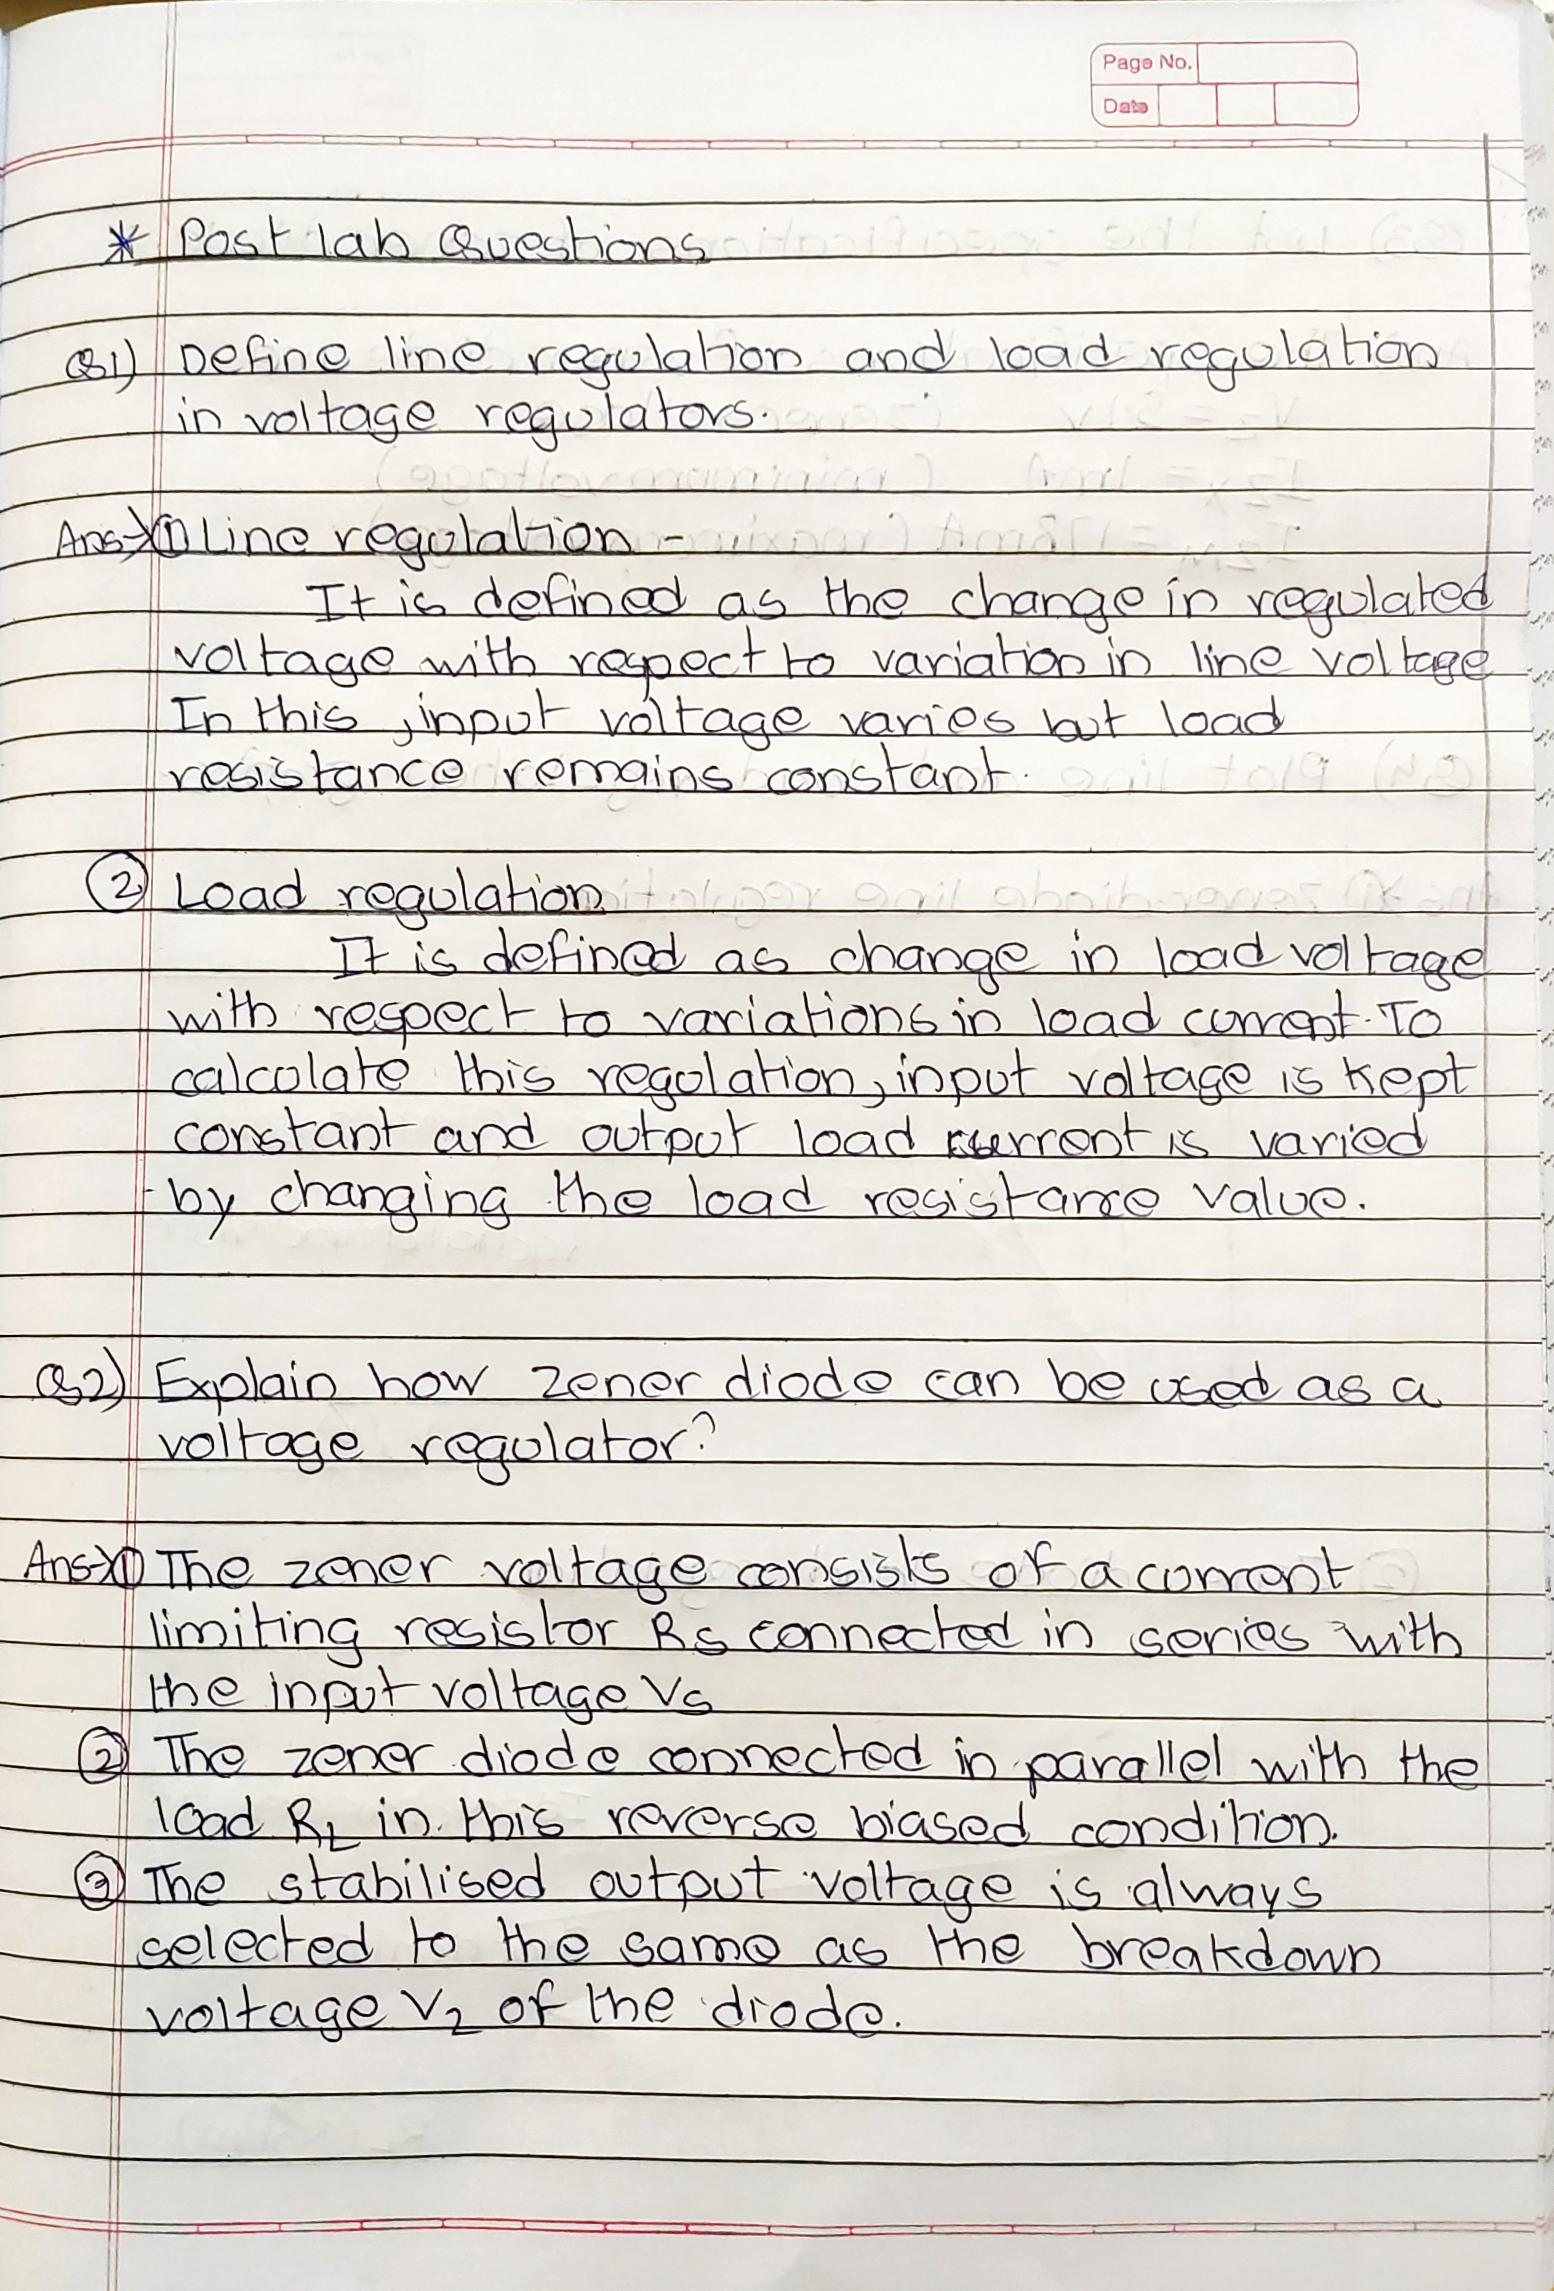 Page No.
Date
* Post lab Questions
Q1) Define line regulation and load regulation
in voltage regulators.
Ans→① Line regulation -
It is defined as the change in regulated
voltage with respect to variation in line voltage
In this, input voltage varies but load
resistance remains constant.
② Load regulation
It is defined as change in load voltage
with respect to variations in load current. To
calculate this regulation, input voltage is kept
constant and output load current is varied
by changing the load resistance value.
Q2) Explain how zener diode can be used as a
voltage regulator?
Ans→① The zener voltage consists of a current
limiting resistor Rs connected in series with
the input voltage Vs
② The zener diode connected in parallel with the
load RL in this reverse biased condition.
③ The stabilised output voltage is always
selected to the same as the breakdown
voltage Vz of the diode.